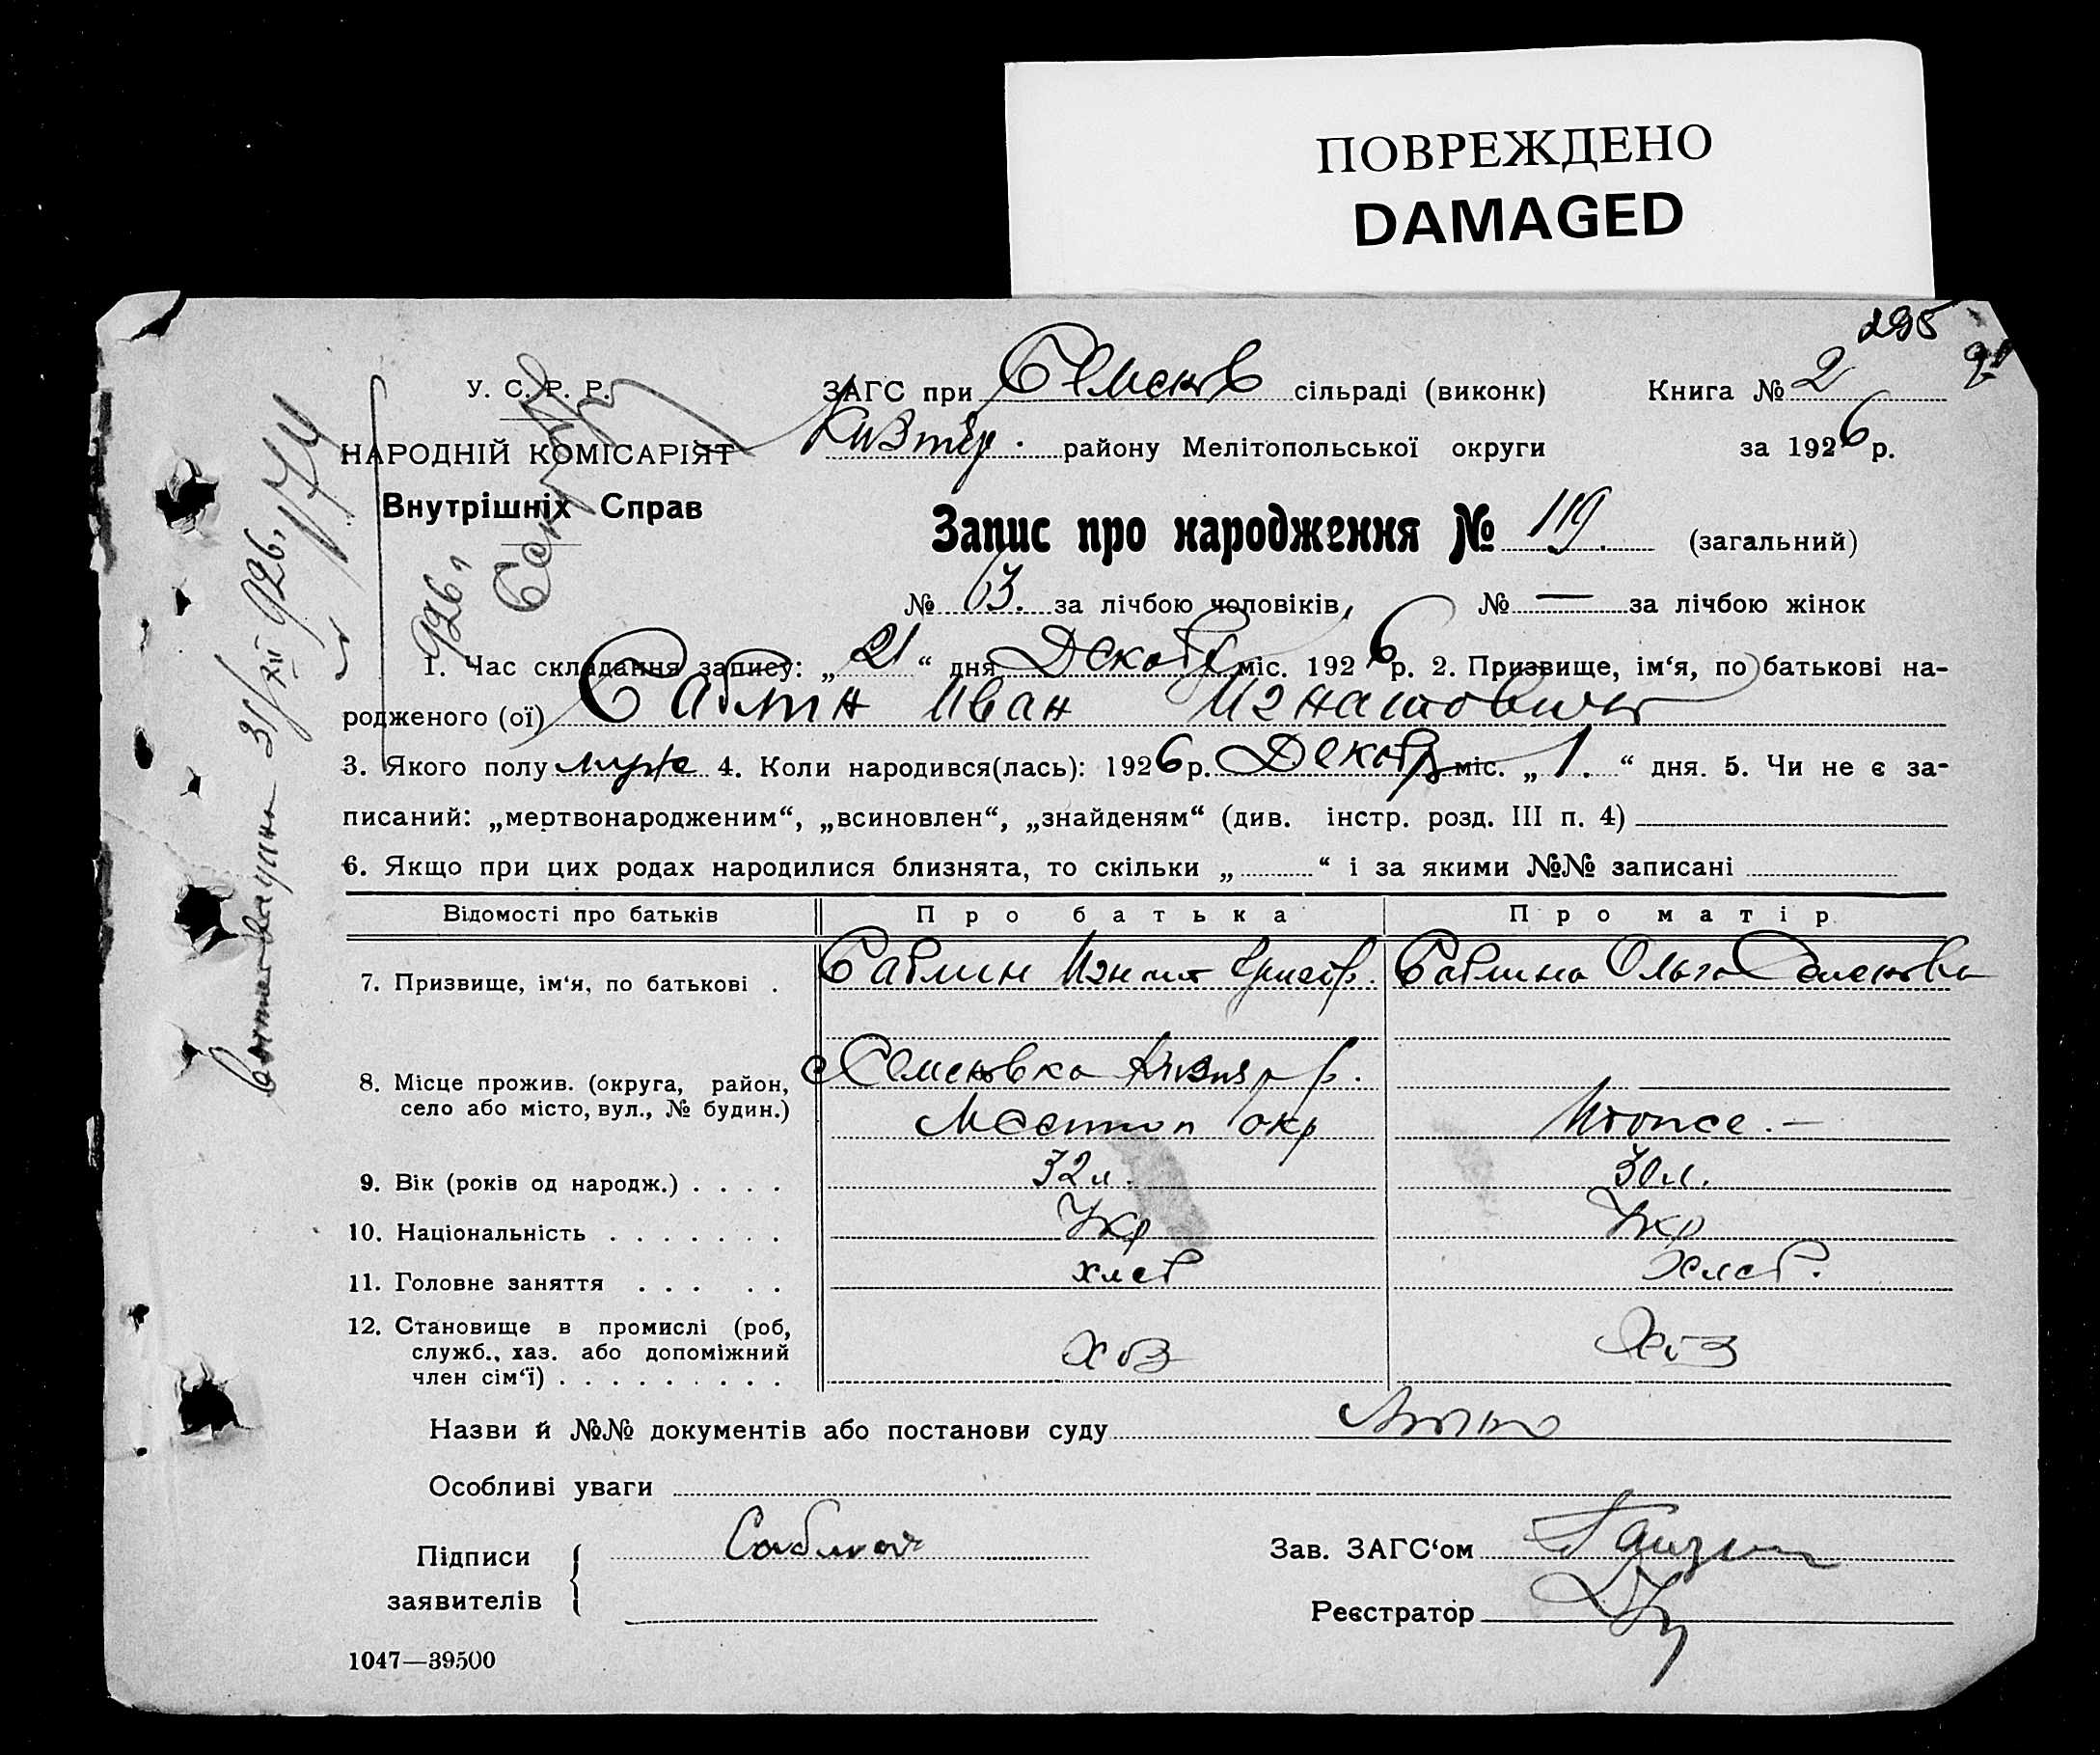 ПОВРЕЖДЕНО
DAMAGED
295
У. С. Р. Р.
НАРОДНІЙ КОМІСАРІЯТ
Внутрішніх Справ
ЗАГС при Семенов сільраді (виконк) Книга № 2
району Мелітопольської округи за 1926 р.
Запис про народження № 119. (загальний)
№ 63. за лічбою чоловіків, № — за лічбою жінок
1. Час складання запису: „21“ дня Декабр міс. 1926 р. 2. Призвище, ім‘я, по батькові на-
родженого (ої) Саблин Иван Игнатович
3. Якого полу муж 4. Коли народився(лась): 1926 р. Декабр міс. „1.“ дня. 5. Чи не є за-
писаний: „мертвонародженим“, „всиновлен“, „знайденям“ (див. інстр. розд. III п. 4)
6. Якщо при цих родах народилися близнята, то скільки „ “ і за якими №№ записані
Відомості про батьків Про батька Про матір
7. Призвище, ім‘я, по батькові . Саблин Игнат Григор. Саблина Ольга Семеновн
8. Місце прожив. (округа, район, с Семеновка р.
село або місто, вул., № будин.) окр
9. Вік (років од народж.) . . . . 32 л. 30 л.
10. Національність . . . . . . . Укр Укр
11. Головне заняття . . . . . хлеб хлеб.
12. Становище в промислі (роб,
служб., хаз. або допоміжний
член сім‘ї) . . . . . . . . . хоз хоз
Назви й №№ документів або постанови суду
Особливі уваги
Підписи
заявителів
Саблин
Зав. ЗАГС‘ом
Реєстратор
1047—39500
31/XII 926.
926.